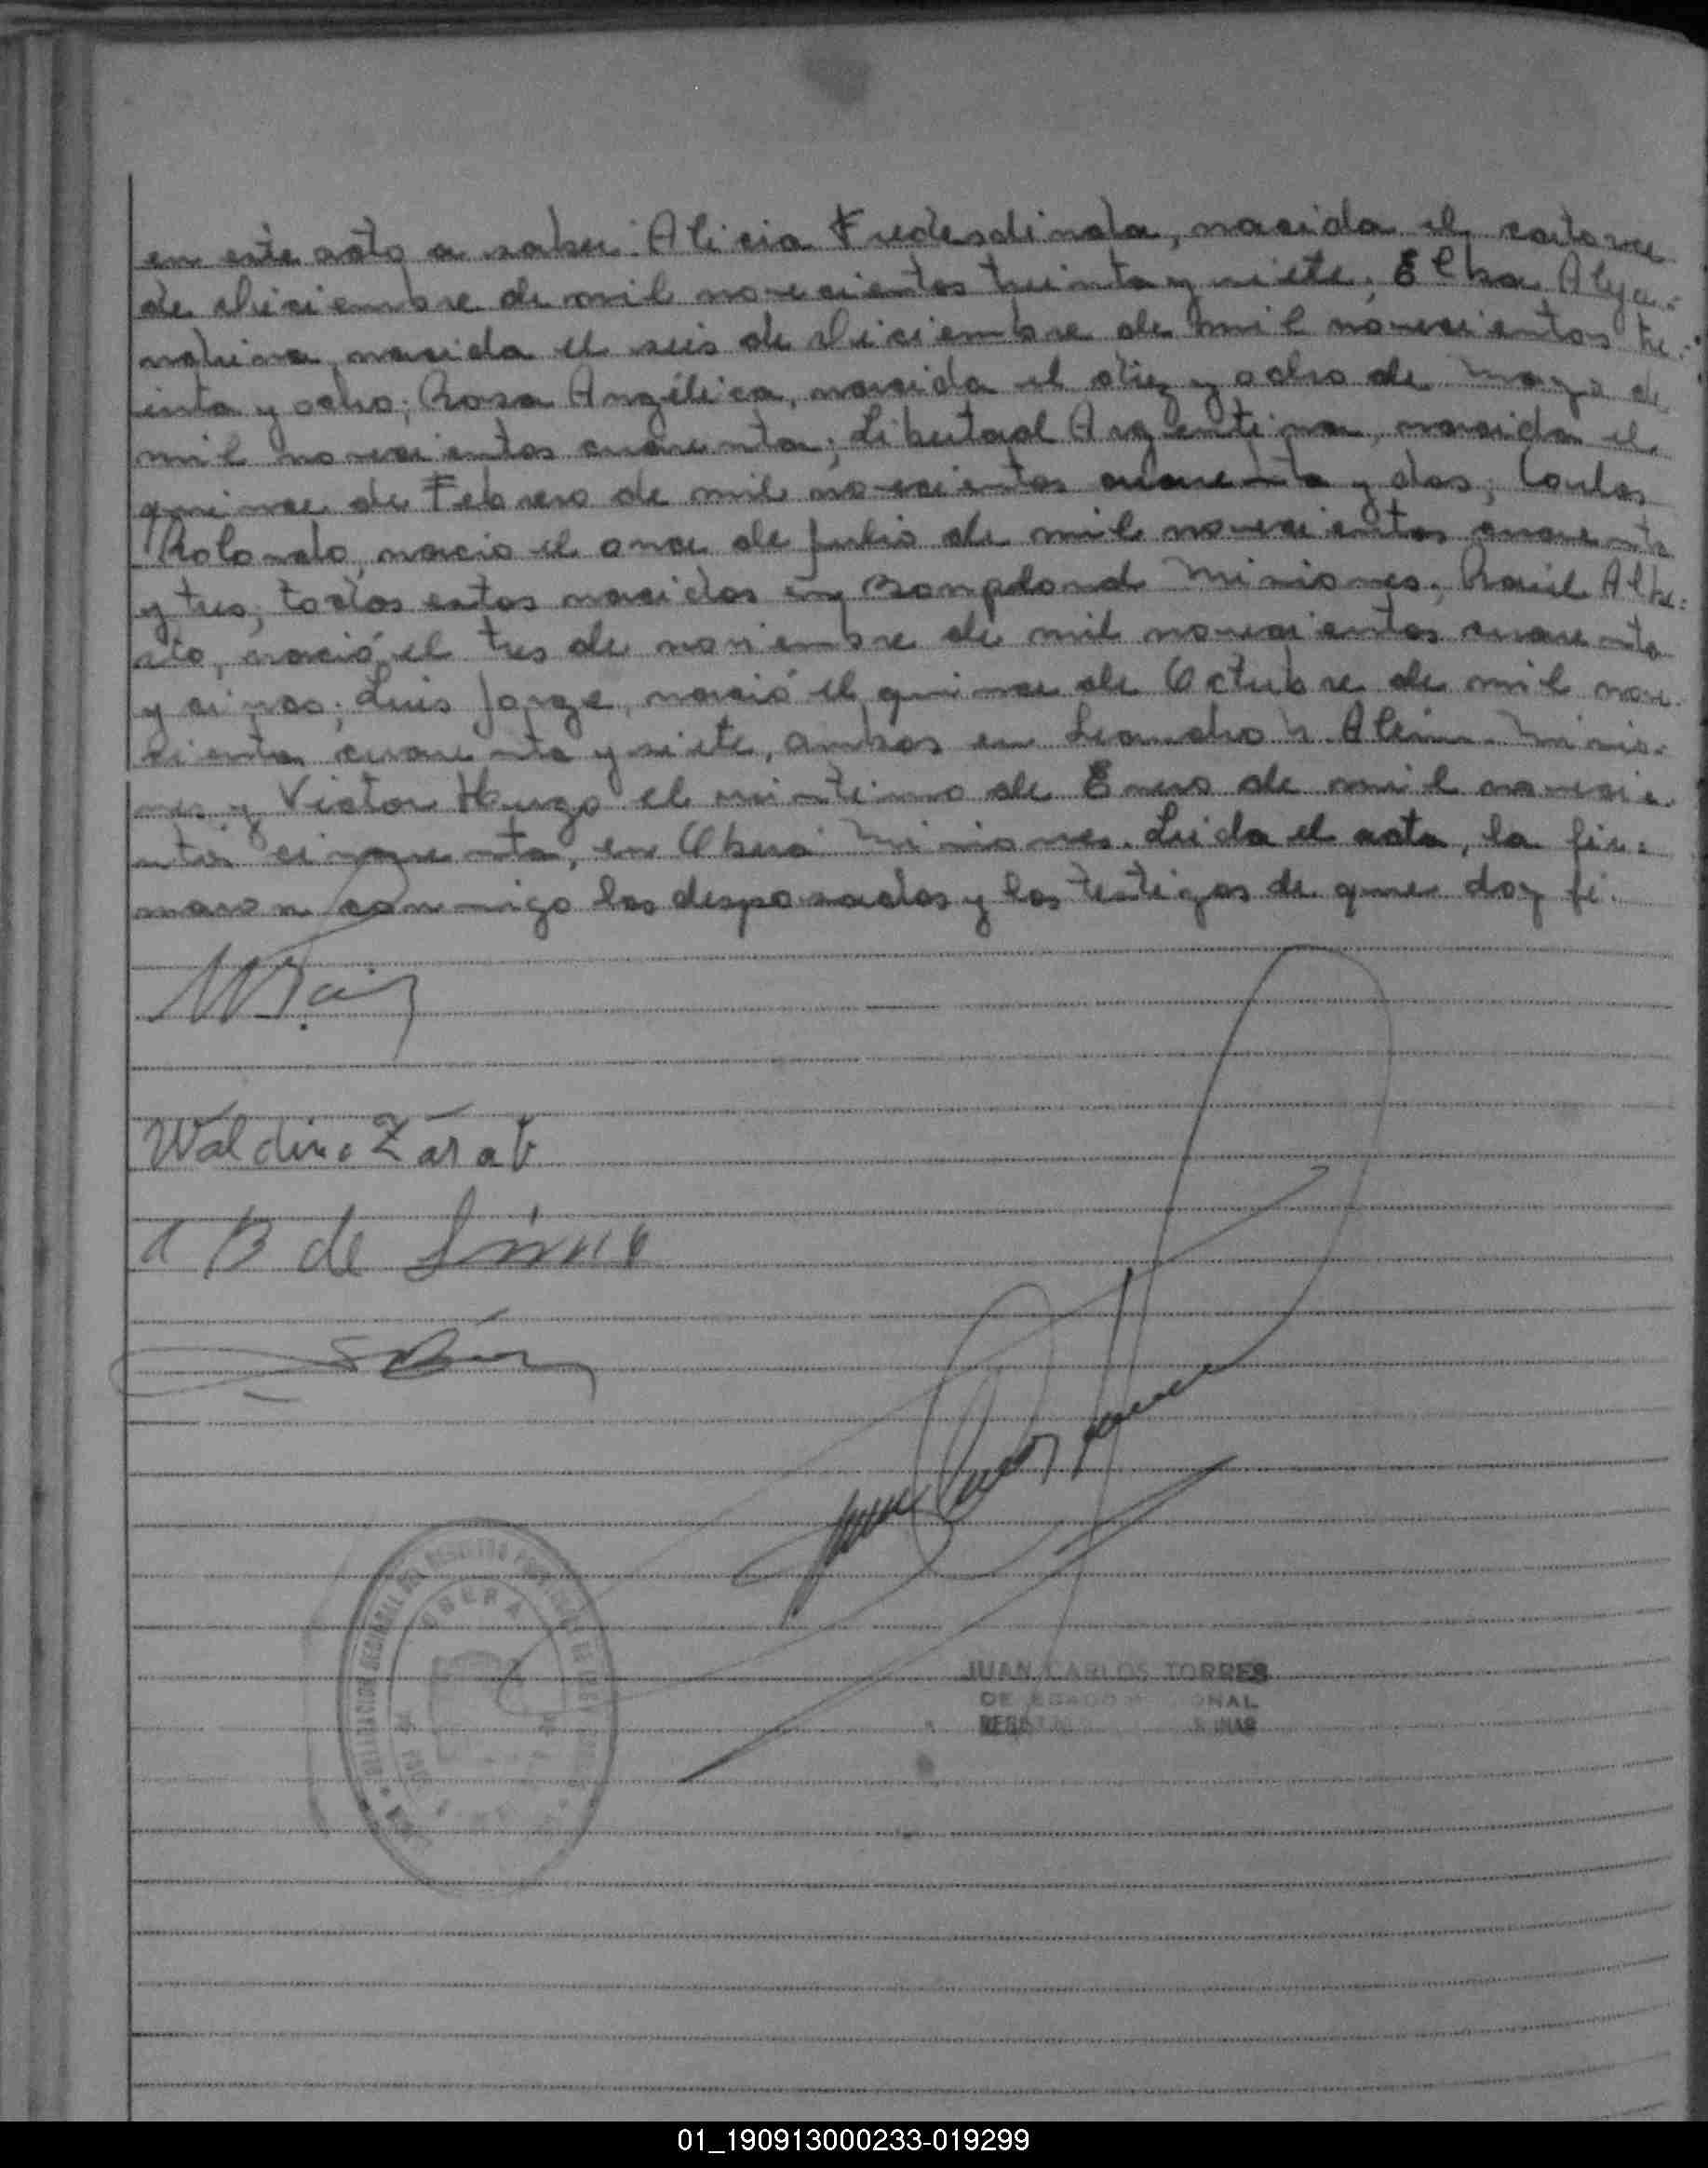 en este acto a saber: Alicia Fredesdinda, nacida el catorce
de diciembre de mil novecientos treinta y siete; Elba Aleja=
ndrina, nacida el seis de diciembre de mil novecientos tre=
inta y ocho; Rosa Angélica, nacida el diez y ocho de mayo de
mil novecientos cuarenta; Libertad Argentina, nacida el
quince de Febrero de mil novecientos cuarenta y dos; Carlos
Rolando, nació el once de julio de mil novecientos cuarenta
y tres; todos estos nacidos en Bompland Misiones; Raúl Albe=
rto, nació el tres de noviembre de mil novecientos cuarenta
y cinco; Luis Jorge, nació el quince de Octubre de mil nove-
cientos cuarenta y siete, ambos en Leandro N. Alem. Misio-
nes y Victor Hugo el veintiuno de Enero de mil novecie-
ntos cincuenta, en Oberá Misiones. Leida el acta, la fir=
maron conmigo los desposados y los testigos de que doy fé.
Waldino Zárat
A B de
JUAN CARLOS TORRES
OBERA
01_190913000233-019299